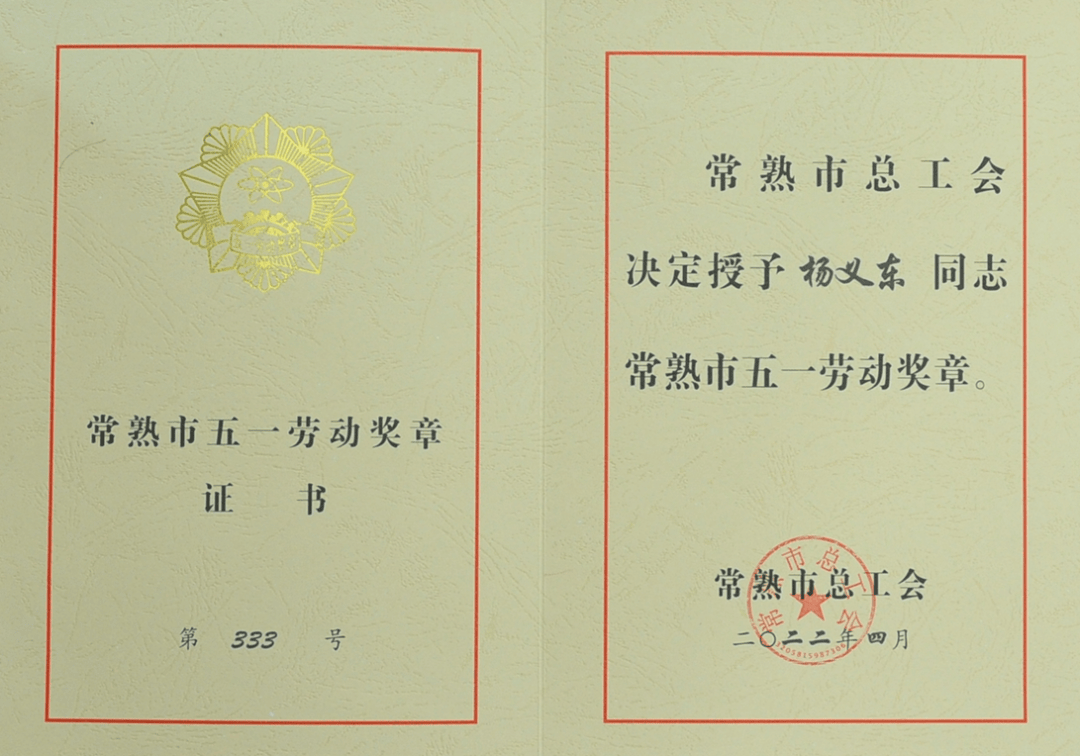 常熟市五一劳动奖章
证书
第 333 号
常熟市总工会
决定授予 杨义东 同志
常熟市五一劳动奖章。
常熟市总工会
二〇二二年四月
常熟市总工会